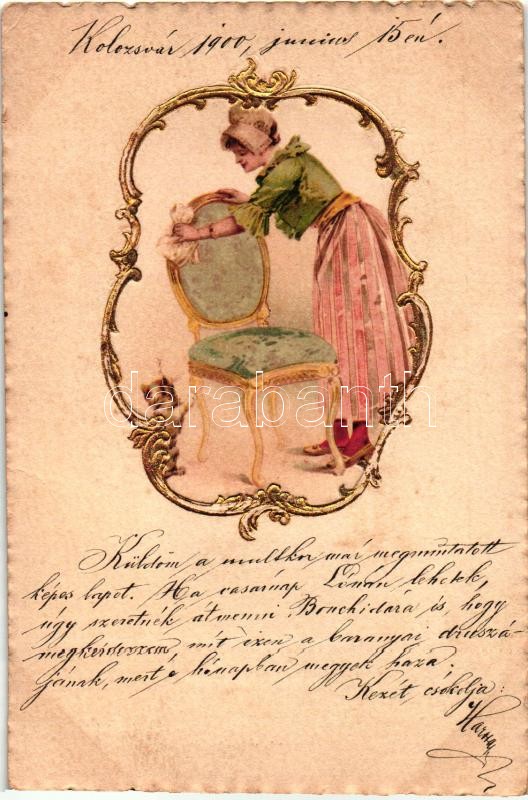 Kolozsvár 1900, junius 15 én.
darabanth
Küldöm a multkor már megmutatott
képes lapot. Ha vasárnap Dónán lehetek,
úgy szeretnék átmenni Bonchidára is, hogy
megkérdezzem, mit izen a baranyai
jának, mert e hónapban megyek haza.
Kezét csókolja: